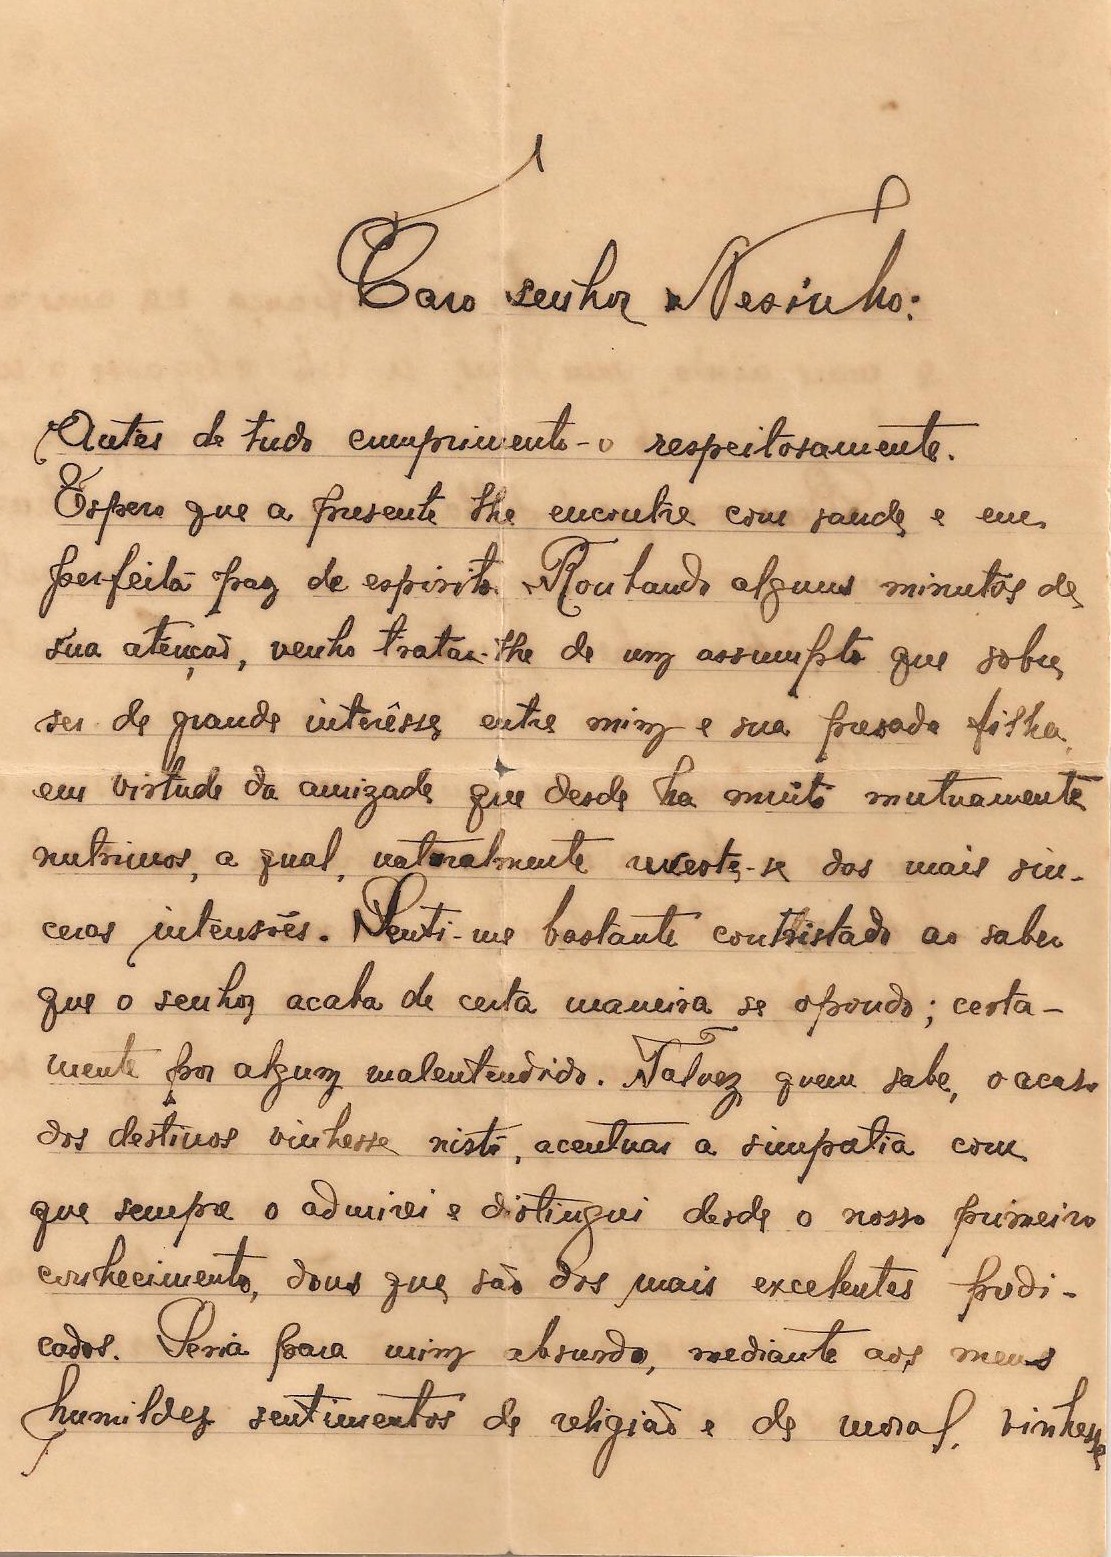 Caro senhor Nesinho:
Antes de tudo cumprimento-o respeitosamente.
Espero que a presente lhe encontre com saude e em
perfeita paz de espirito. Roubando alguns minutos de
sua atenção, venho tratar-lhe de um assumpto que sobre
ser de grande interêsse entre mim e sua presada filha,
em virtude da amizade que desde ha muito mutuamente
nutrimos, a qual, naturalmente reveste-se das mais sin-
ceras intensões. Senti-me bastante contristado ao saber
que o senhor acaba de certa maneira se opondo; certa-
mente por algum malentendido. Talvez, quem sabe, o acaso
dos destinos vinhesse nisto, acentuar a simpatia com
que sempre o admirei e distingui desde o nosso primeiro
conhecimento, dons que são dos mais excelentes predi-
cados. Seria para mim absurdo, mediante aos meus
humildes sentimentos de religião e de moral, vinhesse